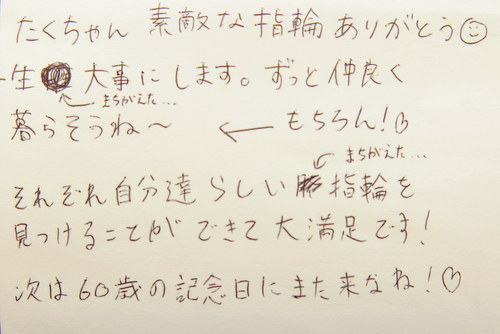 たくちゃん 素敵な指輪ありがとう☺
一生 大事にします。ずっと仲良く
まちがえた…
暮らそうね〜 ← もちろん!♡
まちがえた…
それぞれ自分達らしい 指輪を
見つけることができて大満足です!
次は60歳の記念日にまた来なね!♡